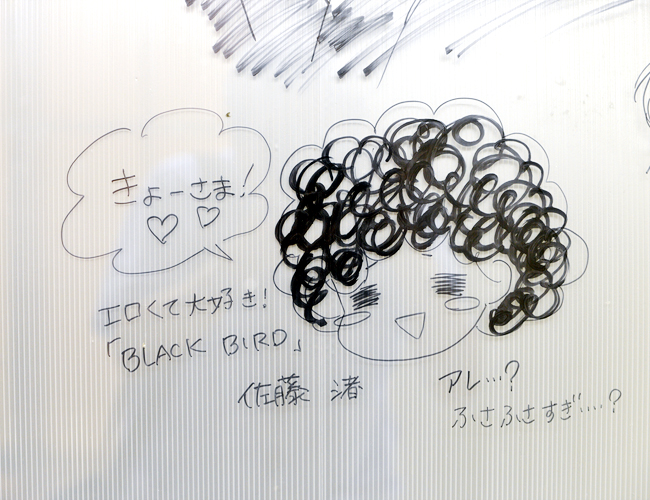 きょーさま!
♡♡
エロくて大好き!
「BLACK BIRD」
佐藤 渚
アレ…?
ふさふさすぎ…?